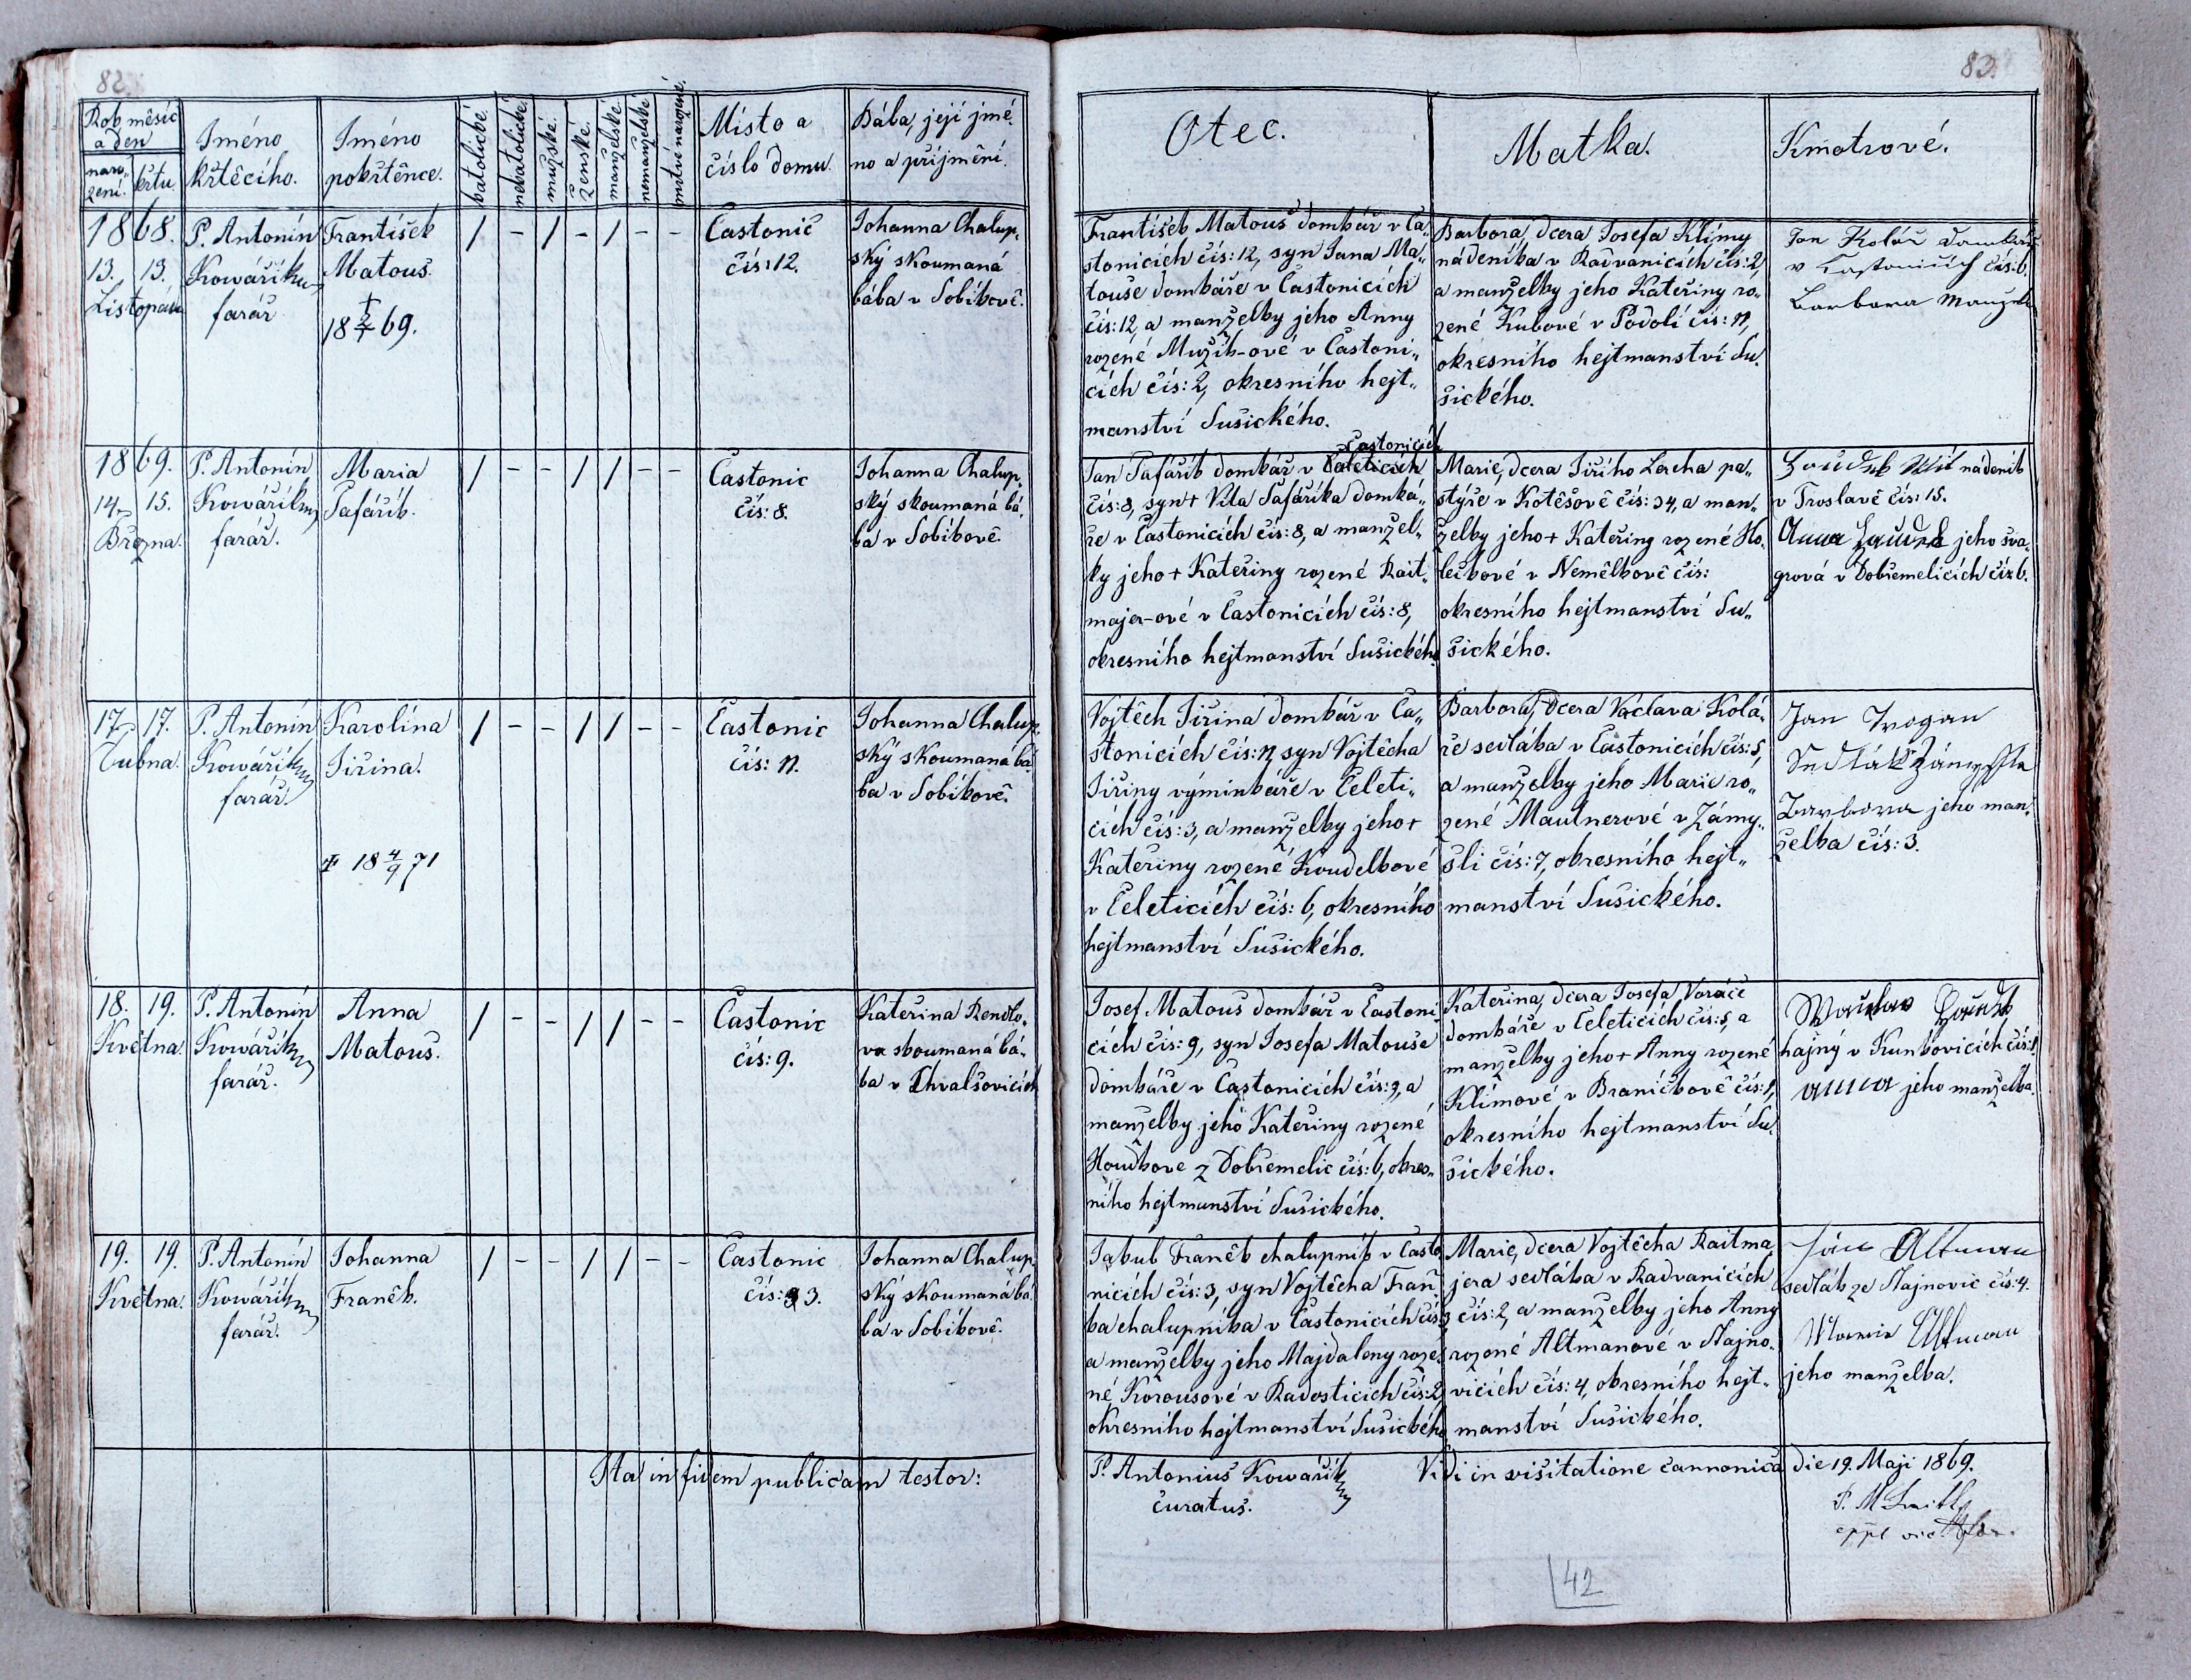 82.
Rok měsíc
a den
naro-
zení.
křtu
Jméno
křtěcího.
Jméno
pokřtěnce.
katolické.
nekatolické.
mužské.
ženské.
manželské.
nemanželské
mrtvě narozené.
Místo a
číslo domu.
Bába, její jmé-
no a příjmění.
1868.
13. 13.
Listopadu
P. Antonín
Kowářík
farář
František
Matouš.
†
18 69.
/ - / - / - -
Častonic
čís: 12.
Johanna Chalup-
ský skoumaná
bába v Soběkově.
1869.
14. 15.
Března.
P. Antonín
Kowářík
farář.
Maria
Šafářík.
/ - - / / - -
Častonic
čís: 8.
Johanna Chalup-
ský skoumaná bá-
ba v Soběkově.
17. 17.
Dubna.
P. Antonín
Kowářík
farář.
Karolína
Jiřina.
† 18 4/9 71
/ - - / / - -
Častonic
čís: 11.
Johanna Chalup-
ský skoumaná bá-
ba v Soběkově.
18. 19.
Května.
P. Antonín
Kowářík
farář.
Anna
Matouš.
/ - - / / - -
Častonic
čís: 9.
Kateřina Rendlo-
va skoumaná bá-
ba v Chvalšovicích
19. 19.
Května.
P. Antonín
Kowářík
farář.
Johanna
Franěk.
/ - - / / - -
Častonic
čís: 3.
Johanna Chalup-
ský skoumaná bá-
ba v Soběkově.
Ita in fidem publicam testor:
83.
Otec.
Matka.
Kmotrové.
František Matouš domkář v Ča-
stonicích čís: 12, syn Jana Ma-
touše domkáře v Častonicích
čís: 12, a manželky jeho Anny
rozené Mužík-ové v Častoni-
cích čís: 2, okresního hejt-
manství Sušického.
Barbora, dcera Josefa Klímy
nádeníka v Radvanicích čís: 2,
a manželky jeho Kateřiny ro-
zené Kubové v Podolí čís: 11,
okresního hejtmanství Su-
šického.
Jan Kolář domkář
v Častonicích čís: 6.
Barbora manžel
Častonicích
Jan Šafářík domkář v Čeleticích
čís: 8, syn † Víta Šafáříka domká-
ře v Častonicích čís: 8, a manžel-
ky jeho † Kateřiny rozené Rait-
majer-ové v Častonicích čís: 8,
okresního hejtmanství Sušického.
Marie, dcera Jiřího Lercha pa-
stýře v Kotěšově čís: 34, a man-
želky jeho † Kateřiny rozené Ho-
lečkové v Nemělkově čís:
okresního hejtmanství Su-
šického.
Haudek Wít nádeník
v Troslavě čís: 15.
Anna Haudek jeho šva-
grová v Dobřemelicích čís: 6.
Vojtěch Jiřina domkář v Ča-
stonicích čís: 11, syn Vojtěcha
Jiřiny výminkáře v Čeleti-
cích čís: 3, a manželky jeho †
Kateřiny rozené Koudelkové
v Čeleticích čís: 6, okresního
hejtmanství Sušického.
Barbora, dcera Václava Kolá-
ře sedláka v Častonicích čís: 5,
a manželky jeho Marie ro-
zené Maulnerové v Zámy-
šli čís: 7, okresního hejt-
manství Sušického.
Jan Trogan
Sedlák Zámyšle
Barbora jeho man-
želka čís: 3.
Josef Matouš domkář v Častoni-
cích čís: 9, syn Josefa Matouše
domkáře v Častonicích čís: 9, a
manželky jeho Kateřiny rozené
Houdkove z Dobřemelic čís: 6, okres-
ního hejtmanství Sušického.
Kateřina, dcera Josefa Voráče
domkáře v Čeleticích čís: 5, a
manželky jeho † Anny rozené
Klímové v Braníčkově čís: 1,
okresního hejtmanství Su-
šického.
Waclav Haudek
hajný v Kunkovicích čís: 1.
Anna jeho manželka.
Jakub Franěk chalupník v Často-
nicích čís: 3, syn Vojtěcha Fraň-
ka chalupníka v Častonicích čís: 3
a manželky jeho Majdaleny roze-
né Korousové v Radosticích čís: 2,
okresního hejtmanství Sušického
Marie, dcera Vojtěcha Raitma-
jera sedláka v Radvanicích
čís: 2, a manželky jeho Anny
rozené Altmanové v Stajno-
vicích čís: 4, okresního hejt-
manství Sušického.
Ján Altman
sedlák ze Stajnovic čís: 4.
Marie Altman
jeho manželka.
P. Antonius Kowářík
curatus.
Vidi in visitatione cannonica die 19. Maji 1869.
42